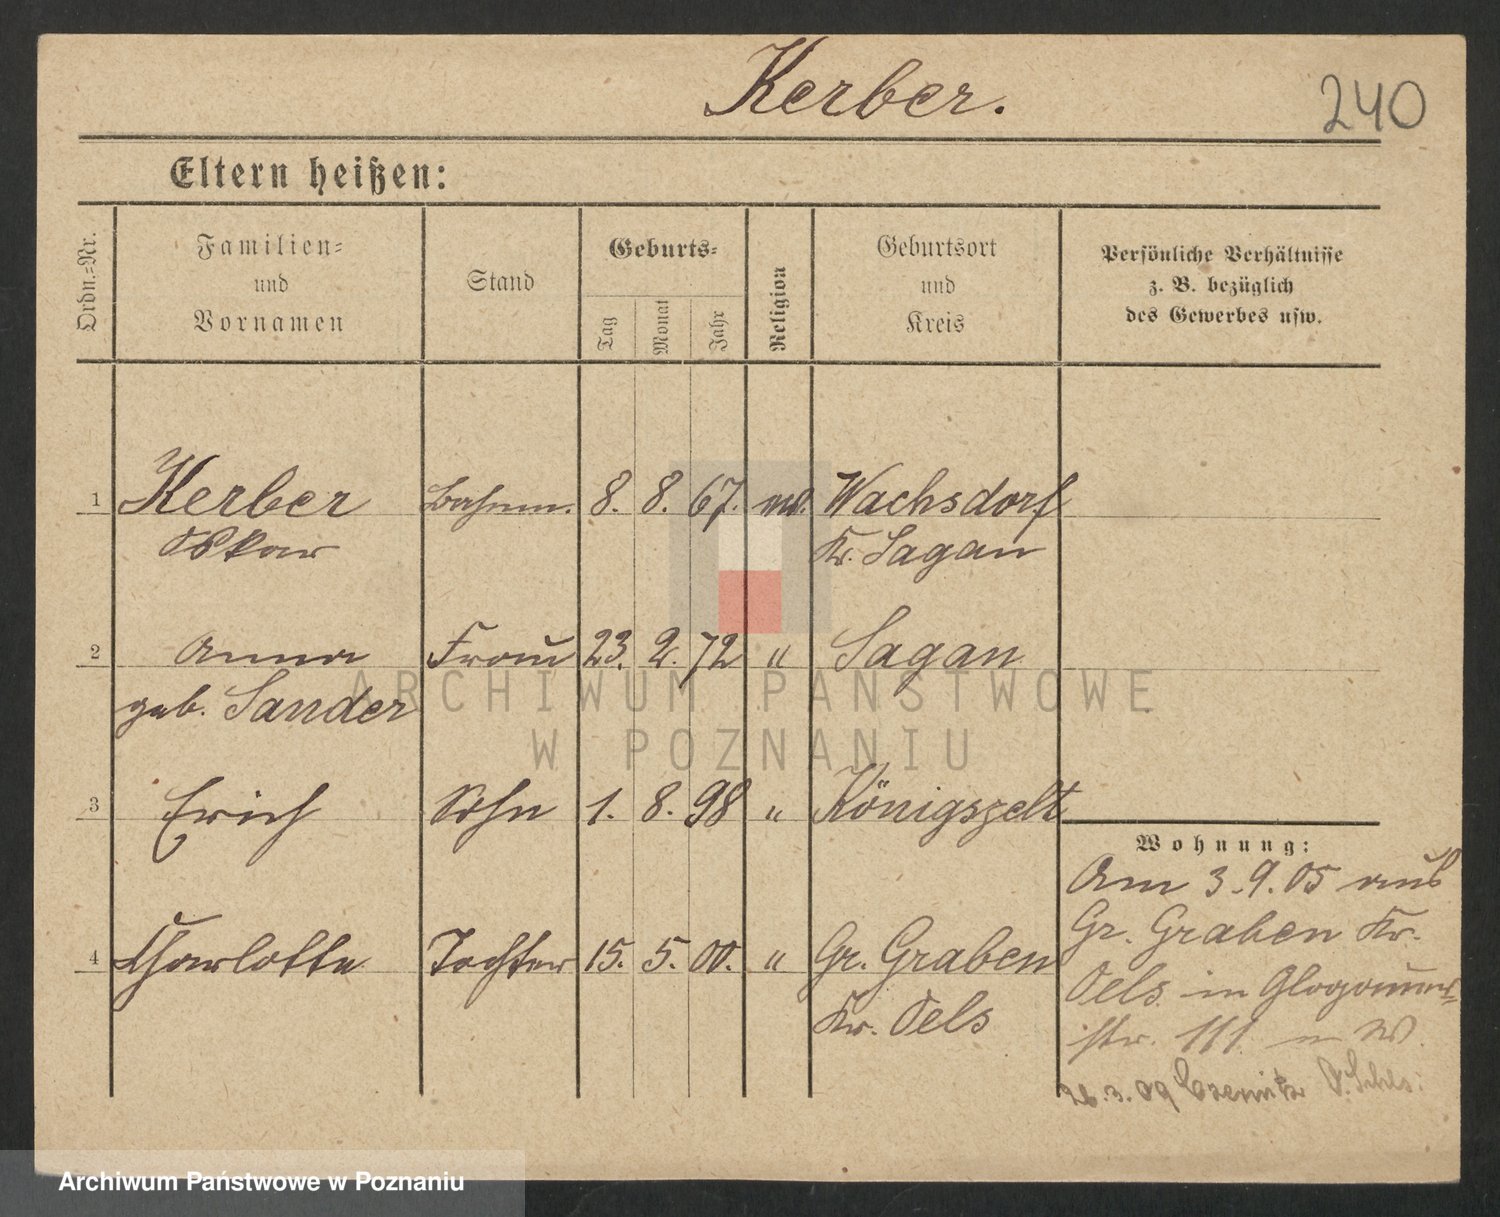 Kerber.
240
Eltern heißen:
Ordn.=Nr.
Familien=
und
Vornamen
Stand
Geburts=
Tag
Monat
Jahr
Religion
Geburtsort
und
Kreis
Persönliche Verhältnisse
z. B. bezüglich
des Gewerbes usw.
1 Kerber 8. 8. 67. Wachsdorf
Oskar Kr. Sagan
2 Anna Frau 23. 2. 72 " Sagan
geb. Sander
3 Erich Sohn 1. 8. 98 " Königszelt
Wohnung:
Am 3.9.05 aus
Gr. Graben Kr.
4 Charlotte Tochter 15. 5. 00. " Gr. Graben
Kr. Oels
Oels in Glogauer=
str. 111
26.3.09 O.Schls.
ARCHIWUM PAŃSTWOWE
W POZNANIU
Archiwum Państwowe w Poznaniu